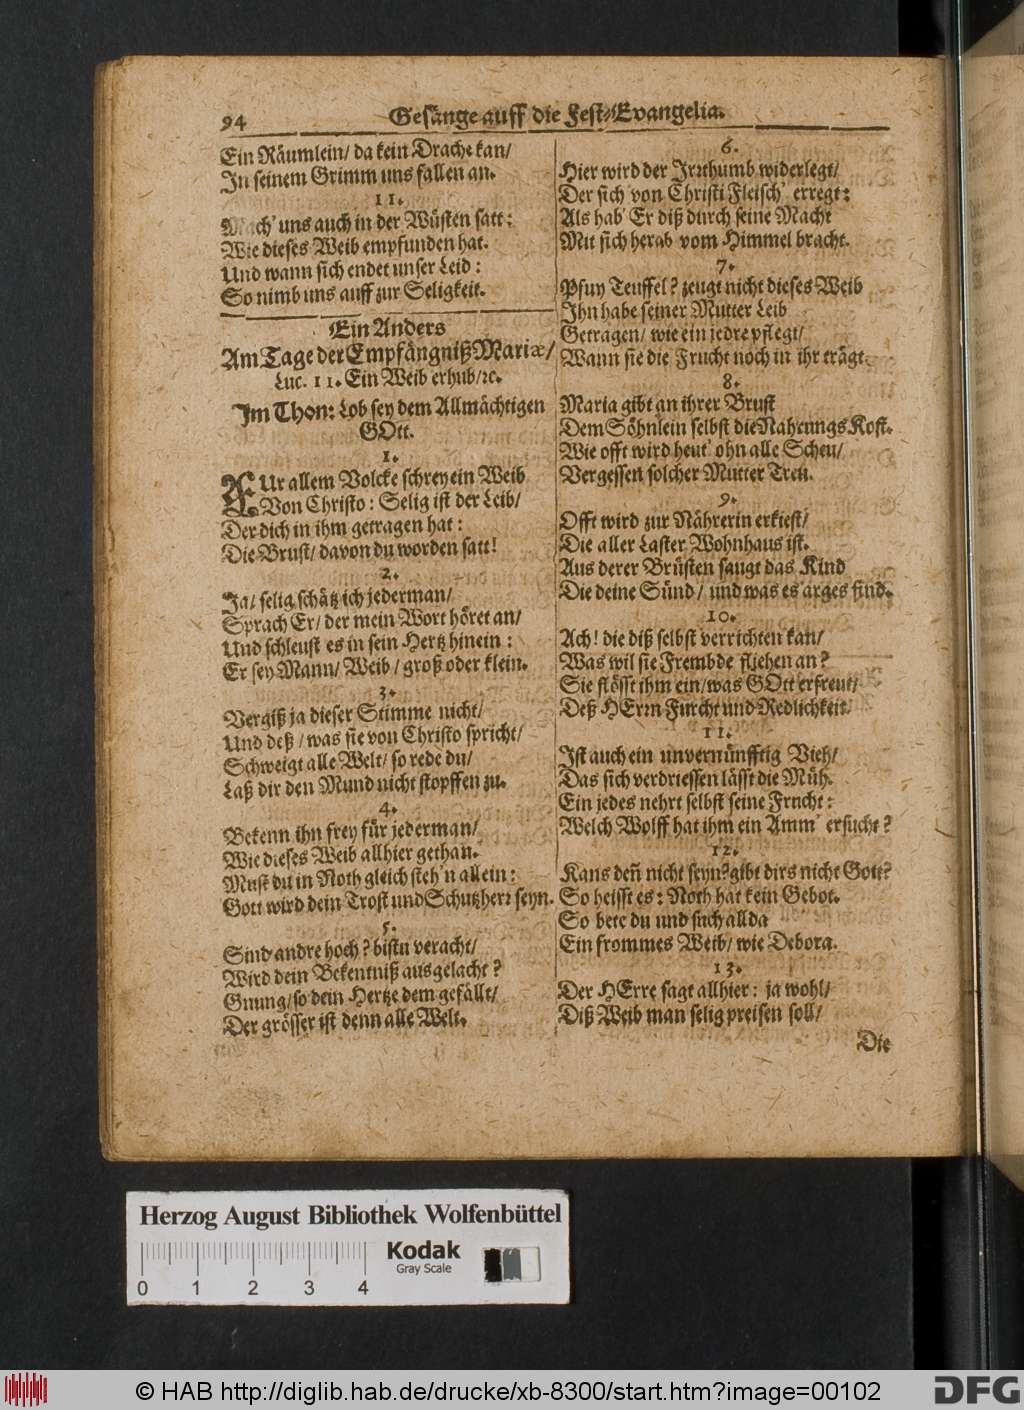 94 Gesänge auff die Fest-Evangelia.
Ein Räumlein/ da kein Drache kan/
In seinem Grimm uns fallen an.
11.
Mach' uns auch in der Wüsten satt:
Wie dieses Weib empfunden hat.
Und wann sich endet unser Leid:
So nimb uns auff zur Seligkeit.
Ein Anders
Am Tage der Empfängniß Mariæ/
Luc. 11. Ein Weib erhub/ ꝛc.
Im Thon: Lob sey dem Allmächtigen
GOtt.
1.
Ur allem Volcke schrey ein Weib
Von Christo: Selig ist der Leib/
Der dich in ihm getragen hat:
Die Brust/ davon du worden satt!
2.
Ja/ selig schätz ich jederman/
Sprach Er/ der mein Wort höret an/
Und schleust es in sein Hertz hinein:
Er sey Mann/ Weib/ groß oder klein.
3.
Vergiß ja dieser Stimme nicht/
Und deß/ was sie von Christo spricht/
Schweigt alle Welt/ so rede du/
Laß dir den Mund nicht stopffen zu.
4.
Bekenn ihn frey für jederman/
Wie dieses Weib allhier gethan.
Must du in Noth gleich steh'n allein:
Gott wird dein Trost und Schutzherr seyn.
5.
Sind andre hoch? bistu veracht/
Wird dein Bekentniß ausgelacht?
Gnung/ so dein Hertze dem gefällt/
Der grösser ist denn alle Welt.
6.
Hier wird der Irrthumb widerlegt/
Der sich von Christi Fleisch' erregt:
Als hab' Er diß durch seine Macht
Mit sich herab vom Himmel bracht.
7.
Pfuy Teuffel? zeugt nicht dieses Weib
Ihn habe seiner Mutter Leib
Getragen/ wie ein jedre pflegt/
Wann sie die Frucht noch in ihr trägt.
8.
Maria gibt an ihrer Brust
Dem Söhnlein selbst die Nahrungs Kost.
Wie offt wird heut' ohn alle Scheu/
Vergessen solcher Mutter Treu.
9.
Offt wird zur Nährerin erkiest/
Die aller Laster Wohnhaus ist.
Aus derer Brüsten saugt das Kind
Die deine Sünd/ und was es arges find.
10.
Ach! die diß selbst verrichten kan/
Was wil sie Frembde flehen an?
Sie flösst ihm ein/ was GOtt erfreut/
Deß HErrn Furcht und Redlichkeit.
11.
Ist auch ein unvernünfftig Vieh/
Das sich verdriessen lässt die Müh.
Ein jedes nehrt selbst seine Frucht:
Welch Wolff hat ihm ein Amm' ersucht?
12.
Kans deñ nicht seyn? gibt dirs nicht Gott?
So heisst es: Noth hat kein Gebot.
So bete du und such allda
Ein frommes Weib/ wie Debora.
13.
Der HErre sagt allhier: ja wohl/
Diß Weib man selig preisen soll/
Die
Herzog August Bibliothek Wolfenbüttel
Kodak
Gray Scale
0 1 2 3 4
© HAB http://diglib.hab.de/drucke/xb-8300/start.htm?image=00102
DFG